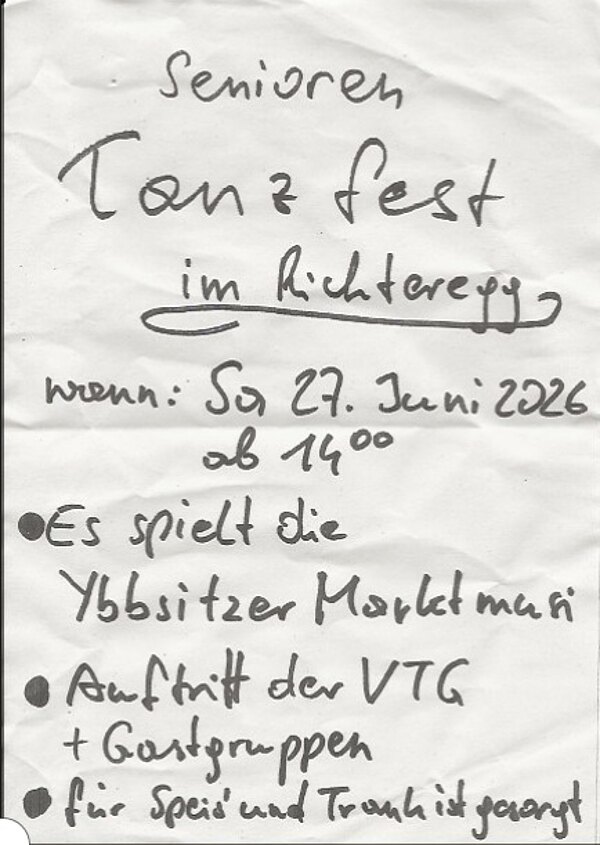 Senioren
Tanzfest
im Richteregg
wann: Sa 27. Juni 2026
ab 14⁰⁰
● Es spielt die
Ybbsitzer Marktmusi
● Auftritt der VTG
+ Gastgruppen
● für Speis' und Trank ist gesorgt